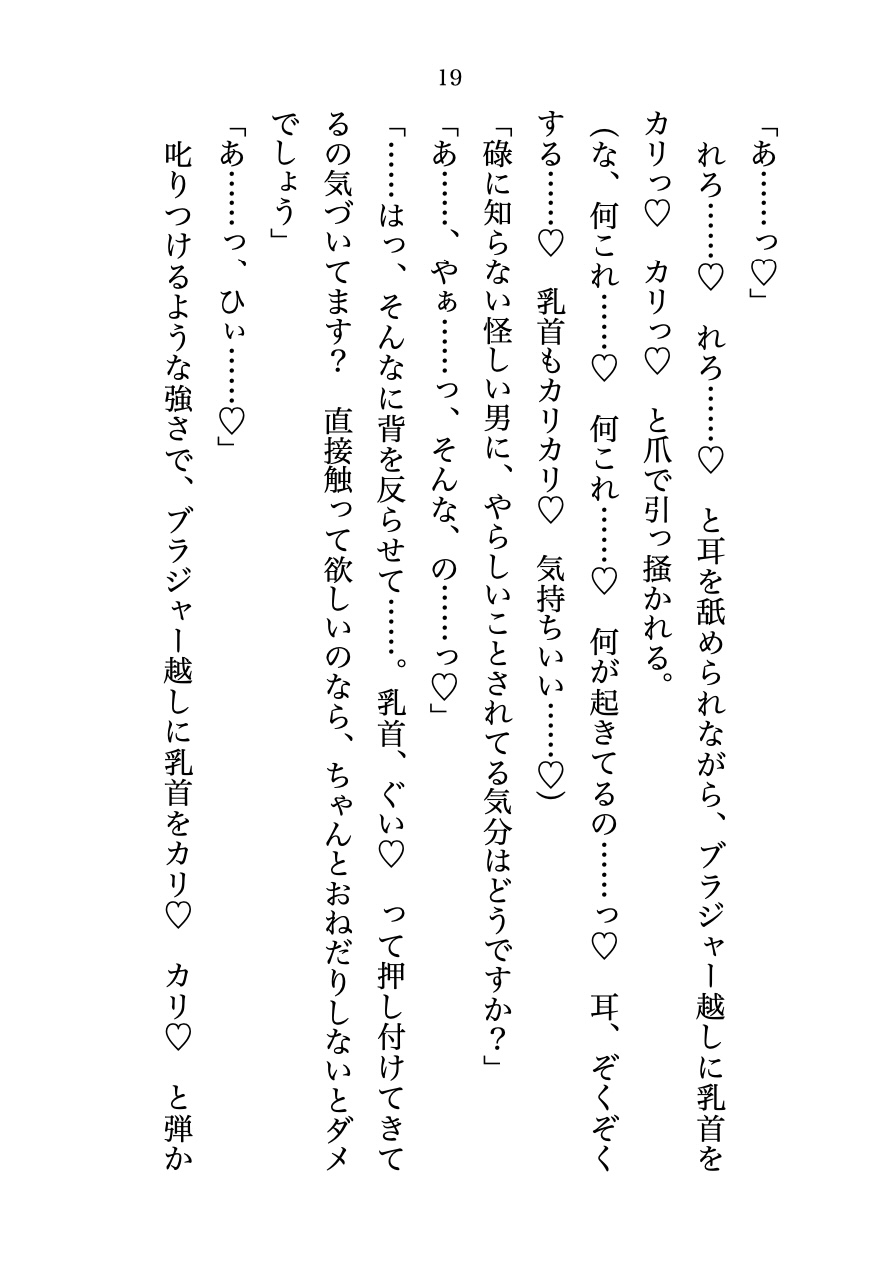 19
「あ……っ♡」
　れろ……♡　れろ……♡　と耳を舐められながら、ブラジャー越しに乳首を
カリっ♡　カリっ♡　と爪で引っ掻かれる。
（な、何これ……♡　何これ……♡　何が起きてるの……っ♡　耳、ぞくぞく
する……♡　乳首もカリカリ♡　気持ちいい……♡）
「碌に知らない怪しい男に、やらしいことされてる気分はどうですか？」
「あ……、やぁ……っ、そんな、の……っ♡」
「……はっ、そんなに背を反らせて……。乳首、ぐい♡　って押し付けてきて
るの気づいてます？　直接触って欲しいのなら、ちゃんとおねだりしないとダメ
でしょう」
「あ……っ、ひぃ……♡」
　叱りつけるような強さで、ブラジャー越しに乳首をカリ♡　カリ♡　と弾か